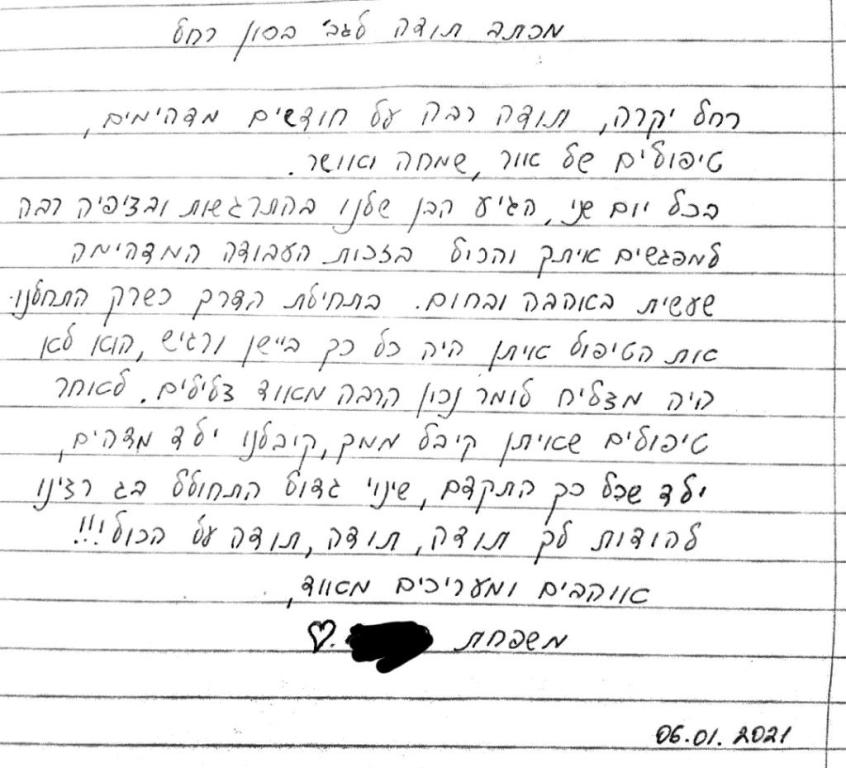 מכתב תודה לגב' בסון רחל
רחל יקרה, תודה רבה על חודשים מדהימים,
טיפולים של אור, שמחה ואושר.
בכל יום שני, הגיע הבן שלנו בהתרגשות ובציפיה רבה
למפגשים איתך והכול בזכות העבודה המדהימה
שעשית באהבה ובחום. בתחילת הדרך כשרק התחלנו
את הטיפול איתן היה כל כך ביישן ורגיש, הוא לא
היה מצליח לומר נכון הרבה מאוד צלילים. לאחר
טיפולים שאיתן קיבל ממך, קיבלנו ילד מדהים,
ילד שכל כך התקדם, שינוי גדול התחולל בו רצינו
להודות לך תודה, תודה, תודה על הכול!!!
אוהבים ומעריכים מאוד,
משפחת
06.01.2021